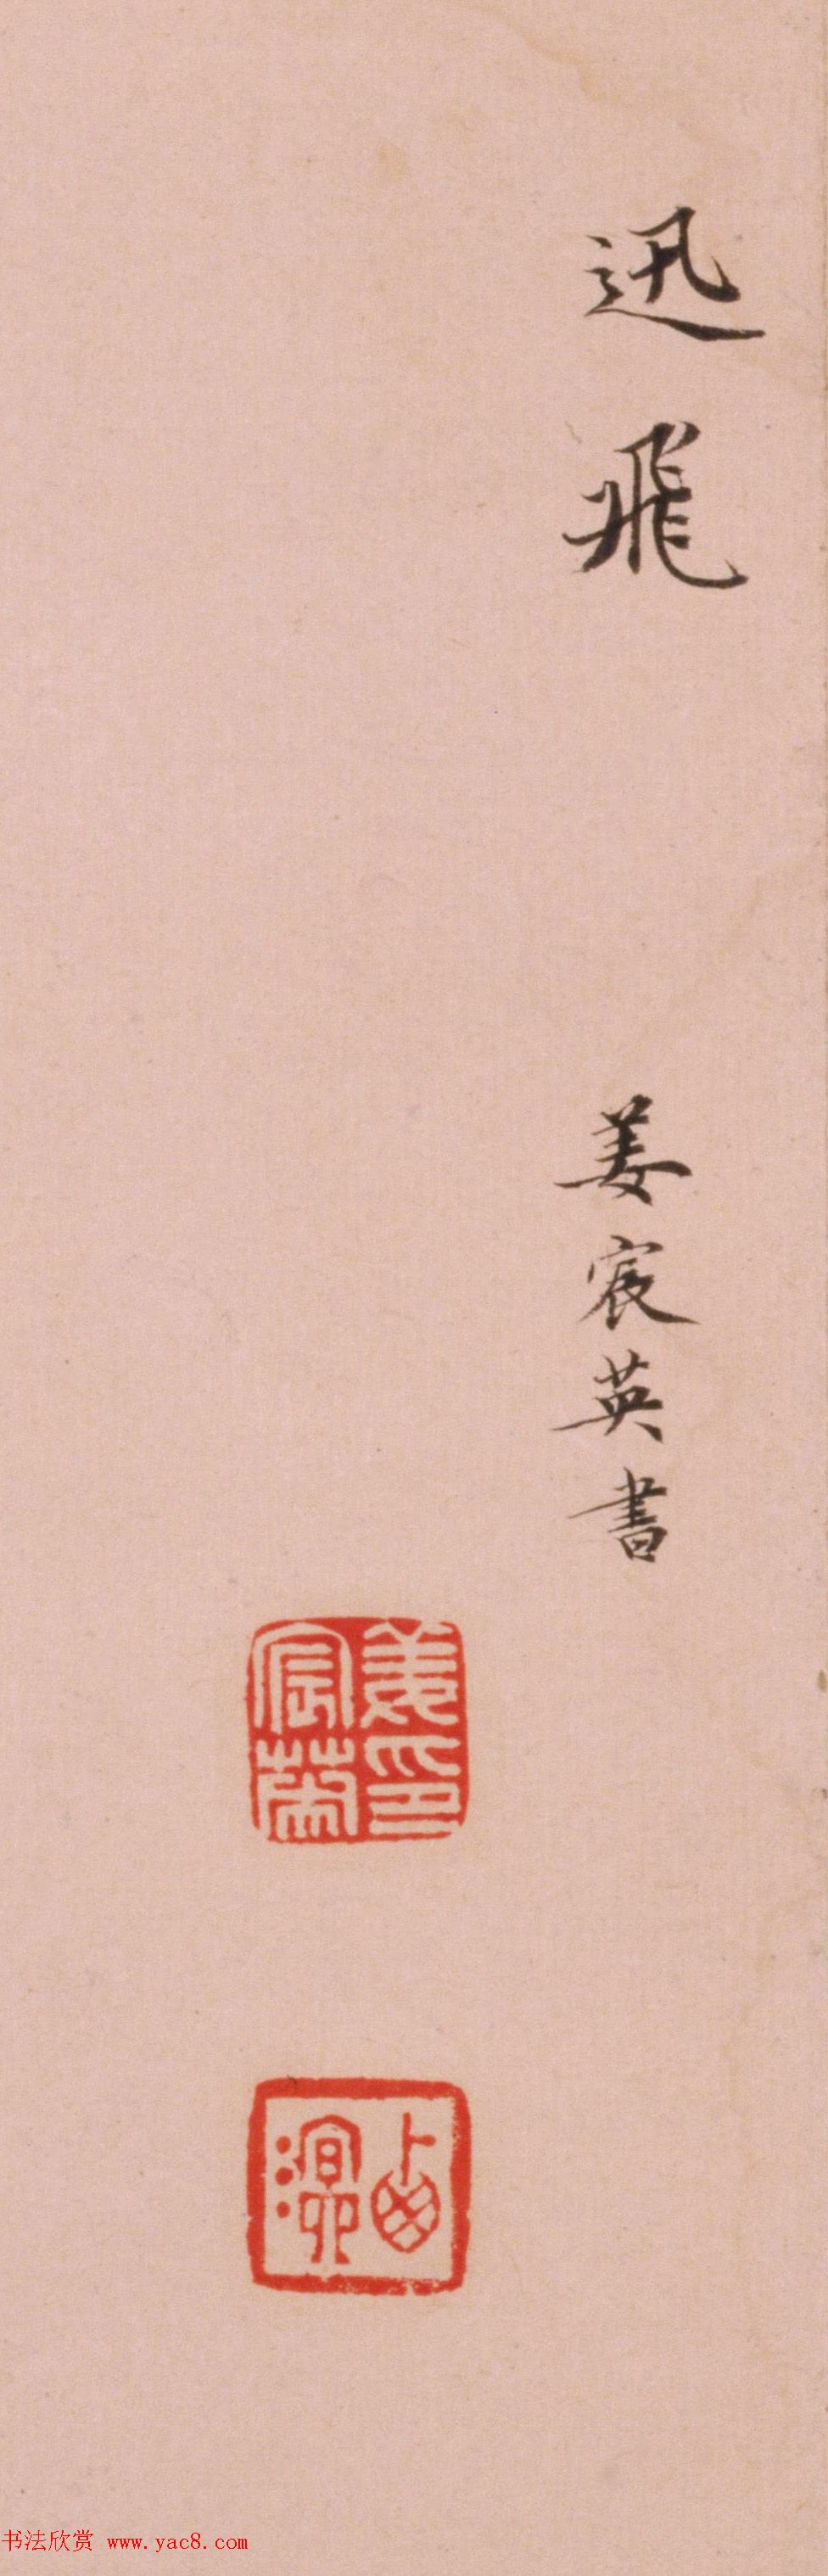 迅飛
姜宸英書
姜印宸英
西溟
书法欣赏 www.yac8.com